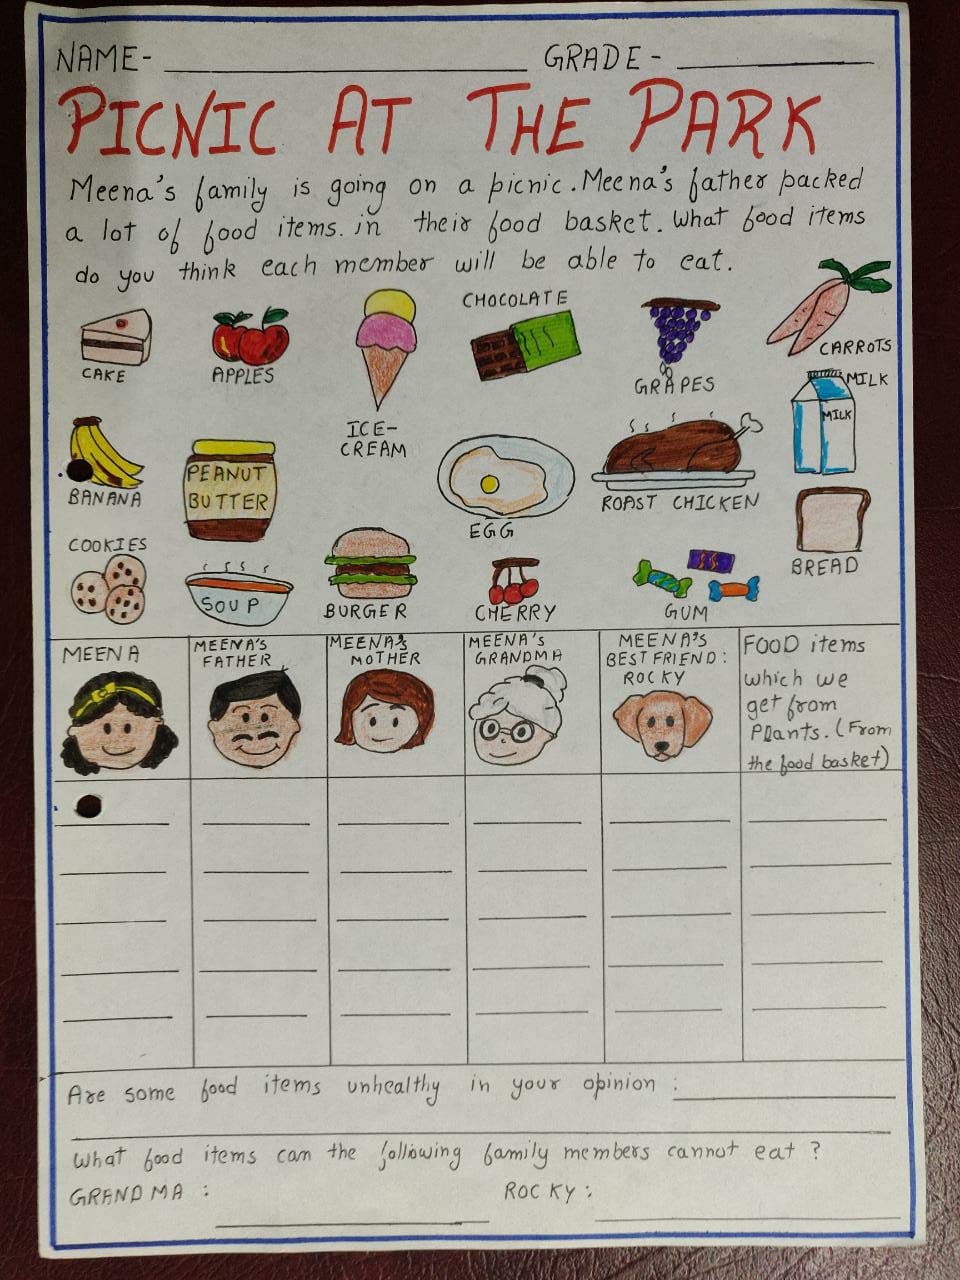 NAME- GRADE-
PICNIC AT THE PARK
Meena's family is going on a picnic. Meena's father packed
a lot of food items. in their food basket. What food items
do you think each member will be able to eat.
CAKE
APPLES
ICE-
CREAM
CHOCOLATE
GRAPES
CARROTS
BANANA
PEANUT
BUTTER
EGG
ROAST CHICKEN
MILK
MILK
COOKIES
SOUP
BURGER
CHERRY
GUM
BREAD
MEENA
MEENA'S
FATHER
MEENA'S
MOTHER
MEENA'S
GRANDMA
MEENA'S
BEST FRIEND:
ROCKY
FOOD items
which we
get from
Plants. (From
the food basket)
Are some food items unhealthy in your opinion :
What food items can the following family members cannot eat ?
GRANDMA : ROCKY: